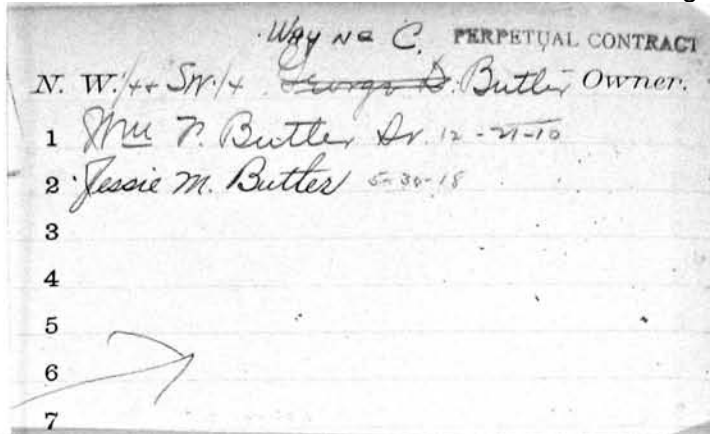 Wayne C. PERPETUAL CONTRACT
N. W. 1/4 + SW. 1/4 George D. Butler Owner.
1 Wm F. Butler Sr. 12-21-10
2 Jessie M. Butler 5-30-18
3
4
5
6
7